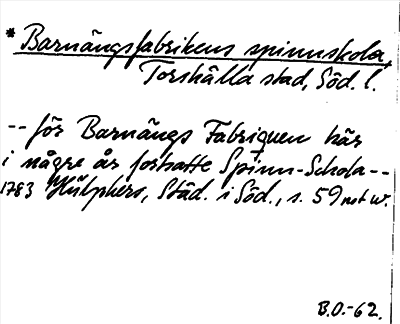 * Barnängsfabrikens spinnskola,
Torshälla stad, Söd. l.
-- för Barnängs Fabriquen här
i någre år forhatte Spinn-Schola --
1783 Hülphers, Städ. i Söd., s. 59 not w.
B.O.-62.